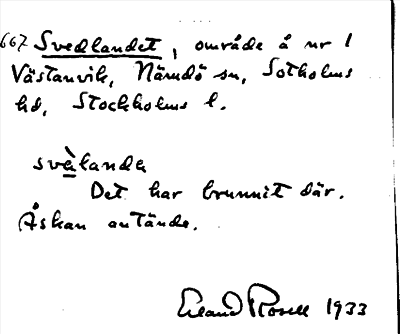 667 Svedlandet, område å nr 1
Västanvik, Nämdö sn, Sotholms
hd, Stockholms l.
svèlandə
Det har brunnit där.
Åskan antände.
Erland Rosell 1933